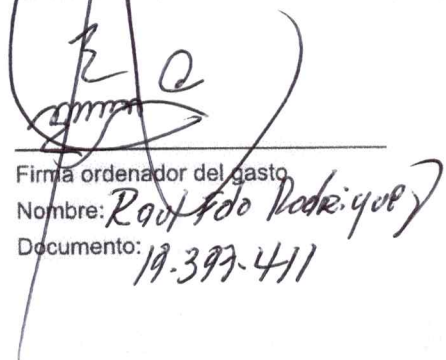 Firma ordenador del gasto
Nombre: Raul Fdo Rodriguez
Documento: 19.393.411